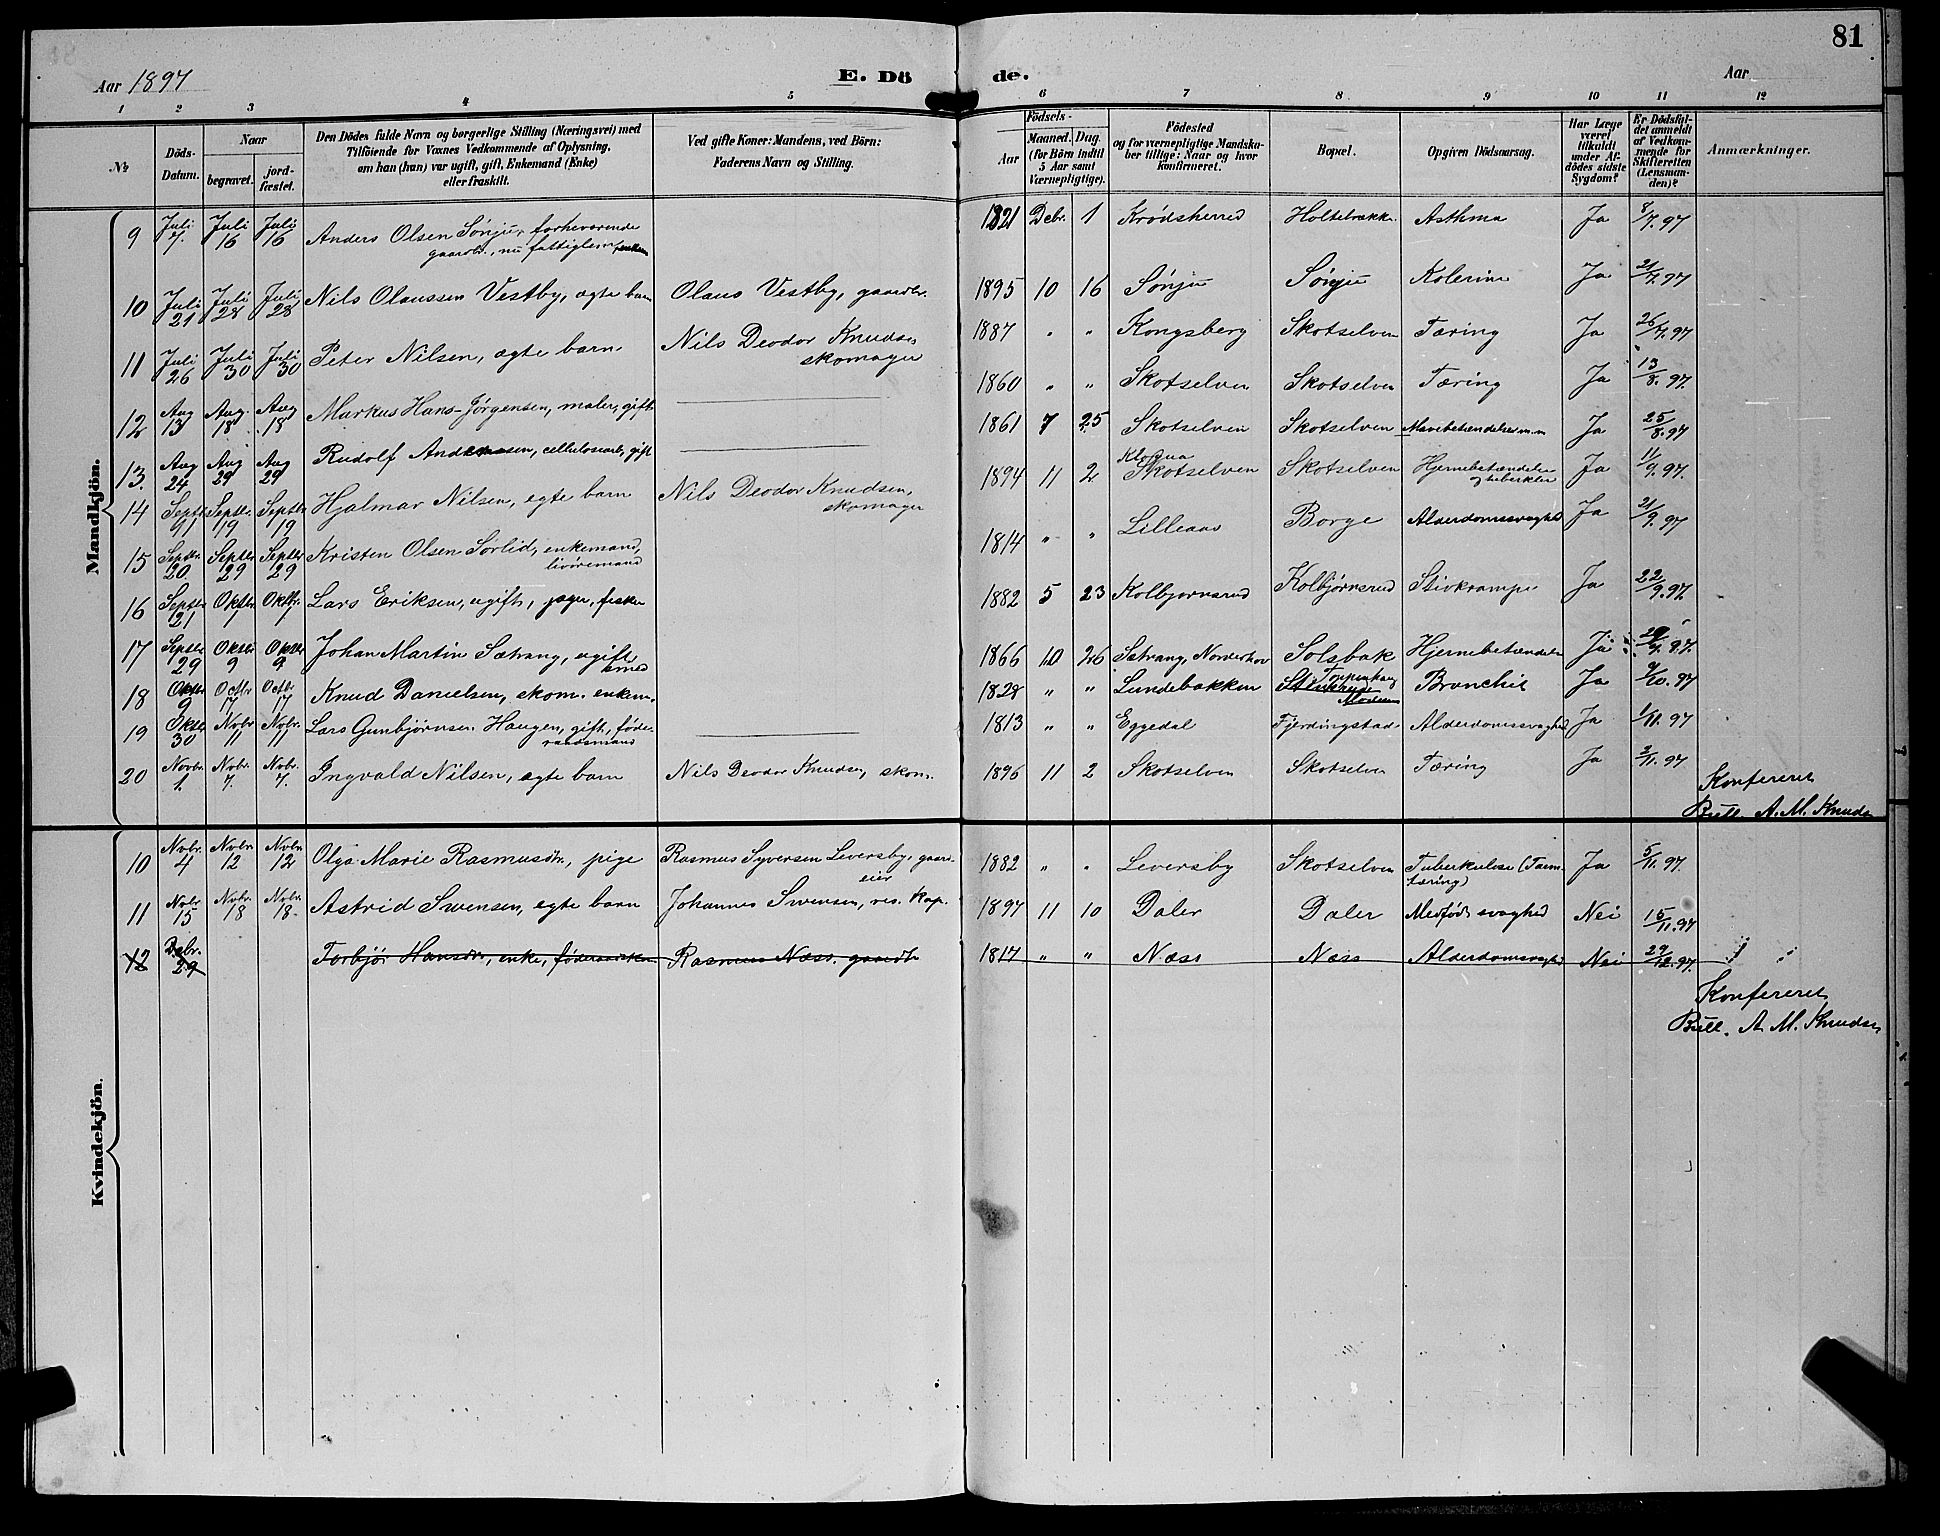 81
Aar 1897 E. Dö de. Aar
1 2 3 4 5 6 7 8 9 10 11 12
№ Döds-Datum. Naar begravet. jord-fæstet. Den Dödes fulde Navn og borgerlige Stilling (Næringsvei) med Tilföiende for Voxnes Vedkommende af Oplysning, om han (hun) var ugift, gift, Enkemand (Enke) eller fraskilt. Ved gifte Koner: Mandens, ved Börn: Faderens Navn og Stilling. Födsels- Aar Maaned. Dag. (for Börn indtil 5 Aar samt Værnepligtige). Födested og for værnepligtige Mandskaber tillige: Naar og hvor konfirmeret. Bopæl. Opgiven Dödsaarsag. Har Læge været tilkaldt under Afdödes sidste Sygdom? Er Dödsfaldet anmeldt af Vedkommende for Skifteretten (Lensmanden)? Anmærkninger.
Mandkjön.
9 Juli 7. Juli 16 Juli 16 Anders Olsen Sønju, forheværende gaardbr., nu fattiglem, 1821 Debr. 1 Krødsherred Holtebrække Asthma Ja 8/7. 97
10 Juli 21 Juli 28 Juli 28 Nils Olaussen Vestby, ægte barn Olaus Vestby, gaardbr. 1895 10 16 Sønju Sønju Kolerine Ja 21/7. 97
11 Juli 26 Juli 30 Juli 30 Peter Nilsen, ægte barn Nils Deodor Knudsen skomager 1887 " " Kongsberg Skotselven Tæring Ja 26/7. 97
12 Aug 13 Aug. 18 Aug 18 Markus Hans-Jørgensen, maler, gift 1860 " " Skotselven Skotselven Tæring Ja 13/8. 97.
13. Aug 24 Aug 29 Aug 29 Rudolf Andersen, cellulosearb., gift 1861 7 25 Skotselven Skotselven Mavebetændelse m.m Ja 25/8. 97
14 Septbr. 11 Septbr. 19 Septbr. 19 Hjalmar Nilsen, egte barn Nils Deodor Knudsen, skomager 1894 11 2 Skotselven Skotselven Hjernebetændelse og tuberkler Ja 11/9. 97.
15 Septbr. 20 Septbr. 29 Septbr. 29 Kristen Olsen Sørlid, enkemand, livøremand 1814 " " Lilleaas Borge Alderdomssvaghed Ja 21/9. 97
16 Septbr. 21 Oktbr. 1 Oktbr. 1 Lars Eriksen, ugift, jæger, fisker 1882 5 23 Kolbjørnsrud Kolbjørnsrud Stivkrampe Ja 22/9. 97.
17 Septbr. 29 Oktbr 9 Oktbr. 9 Johan Martin Sætrang, ugift, smed 1866 10 26 Sætrang, Norderhov Solsbak Hjernebetændelse Ja 29/9. 97.
18 Oktbr. 9 Octbr. 17 Octbr. 17 Knud Danielsen, skom. enkem. 1828 " " Lundebakken Toppenhaug Modum Bronchit Ja 9/10. 97
19 Oktbr. 30 Novbr. 11 Novbr. 11 Lars Gunbjørnsen Haugen, gift, føderaadsmand 1813 " " Eggedal Fjerdingstad Alderdomssvaghed Ja 1/11. 97
20 Novbr. 1. Novbr. 7. Novbr. 7. Ingvald Nilsen, ægte barn Nils Deodor Knudsen, skom. 1896 11 2 Skotselven Skotselven Tæring Ja 2/11. 97
Konfereret
Bull. A. M. Knudsen
Kvindekjön.
10 Novbr. 4 Novbr. 12 Novbr. 12 Olga Marie Rasmusdtr., pige Rasmus Syversen Leversby, gaardeier 1882 " " Leversby Skotselven Tuberkulose (Tarmtæring) Ja 5/11. 97.
11 Novbr. 15 Novbr. 18 Novbr. 18. Astrid Swensen, egte barn Johannes Swensen, res. kap. 1897 11 10 Daler Daler Medfødt svaghed Nei 15/11. 97
12 Debr. 29 Torbjør Hansdtr., enke, føderaadsken Rasmus Næss, gaardbr 1817 " " Næss Næss Alderdomsvaghed Nei 29/12. 97. " "
Konfereret
Bull. A. M. Knudsen